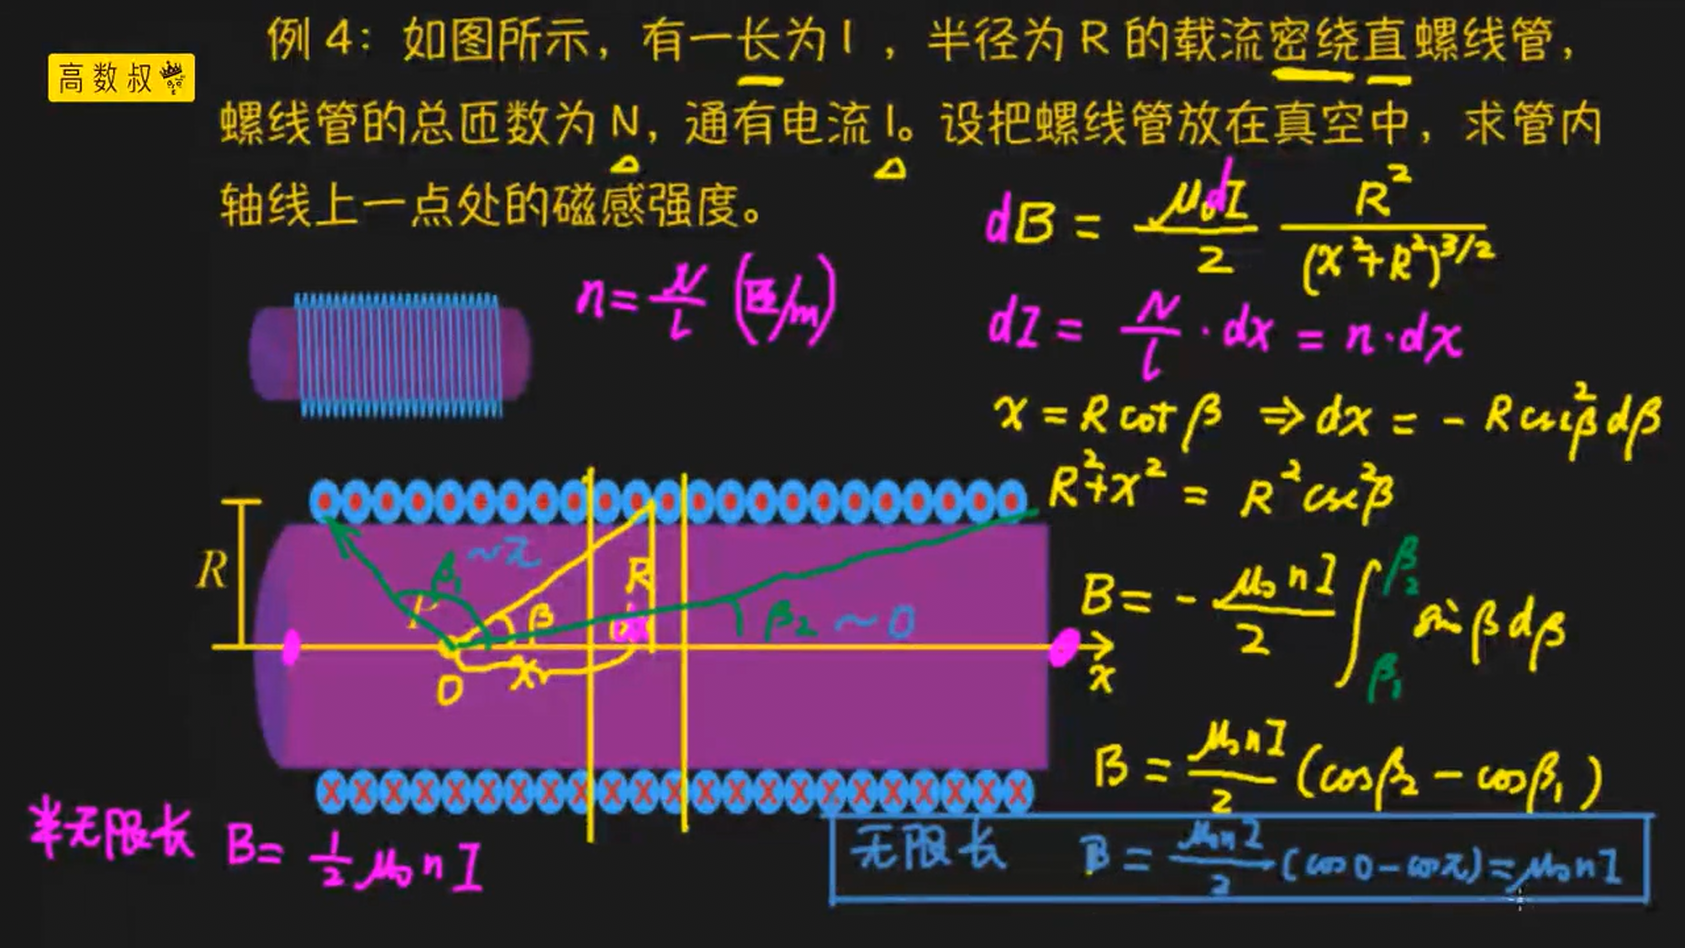 高数叔
例4：如图所示，有一长为l，半径为R的载流密绕直螺线管，
螺线管的总匝数为N，通有电流I。设把螺线管放在真空中，求管内
轴线上一点处的磁感强度。
dB = μ₀dI/2 R²/(x²+R²)^3/2
n = N/l (匝/m)
dI = N/l · dx = n·dx
x = R cot β ⇒ dx = - R csc²β dβ
R²+x² = R² csc²β
R
β₁ ~π
P
β
R
dx
β₂ ~0
O
x
x
B = - μ₀nI/2 ∫β₁^β₂ sin β dβ
B = μ₀nI/2 (cosβ₂ - cosβ₁)
半无限长 B = 1/2 μ₀nI
无限长 B = μ₀nI/2 (cos0 - cosπ) = μ₀nI